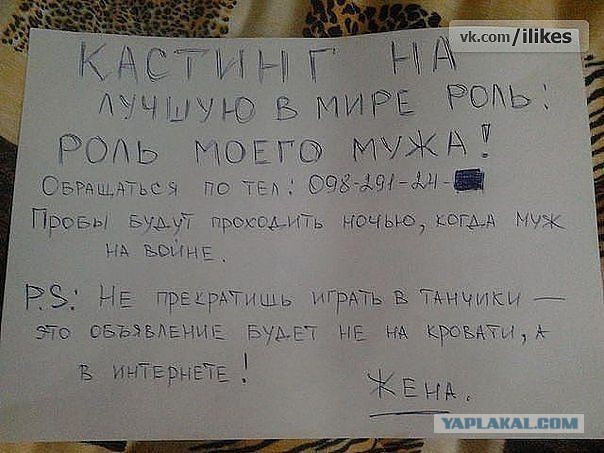 vk.com/ilikes
КАСТИНГ НА
ЛУЧШУЮ В МИРЕ РОЛЬ:
РОЛЬ МОЕГО МУЖА!
ОБРАЩАТЬСЯ ПО ТЕЛ: 098-291-24-
ПРОБЫ БУДУТ ПРОХОДИТЬ НОЧЬЮ, КОГДА МУЖ
НА ВОЙНЕ.
P.S: НЕ ПРЕКРАТИШЬ ИГРАТЬ В ТАНЧИКИ —
ЭТО ОБЪЯВЛЕНИЕ БУДЕТ НЕ НА КРОВАТИ, А
В ИНТЕРНЕТЕ!
ЖЕНА.
YAPLAKAL.COM